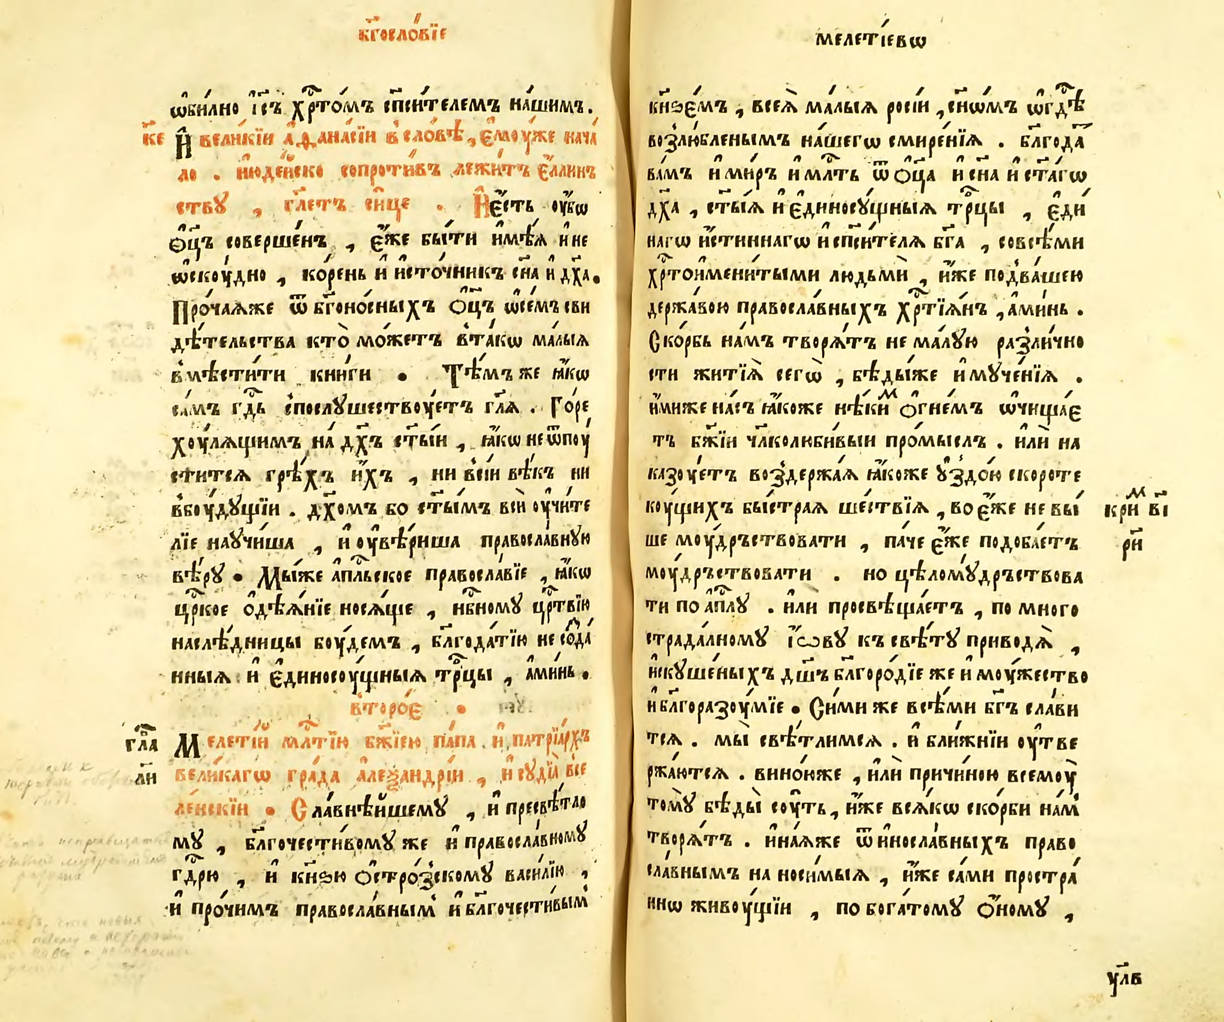 бг҃ословїе
ѡбилно і҆с҃ъ хр҃томъ сп҃сителемъ нашимъ.
к҃е И великїи аѳанасїи в словѣ, емоуже нача
ло. июдейско сопротивъ лежитъ еллин
ству, гл҃етъ сице. Несть оубѡ
ѿц҃ъ совершенъ, еже быти имѣѧ и не
ѡскоудно, корень и источникъ сн҃а и дх҃а.
Прочаѧже ѿ бг҃оносныхъ ѿц҃ъ ѡсемъ сви
дѣтельства кто можетъ втакѡ малыѧ
вмѣстити книги. Тѣмъ же ꙗкѡ
самъ гд҃ь спослушествоуетъ гл҃ѧ. Горе
хоулѧщимъ на дх҃ъ ст҃ыи, ꙗкѡ не ѿпоу
ститсѧ грѣхъ ихъ, ни в сїи вѣкъ ни
вбоудущїи. дх҃омъ бо ст҃ымъ вси оучите
лїе научиша, и оувѣриша православную
вѣру. Мыже ап҃льское православїе, ꙗкѡ
цр҃кое одѣѧнїе носѧще, нб҃ному цр҃твїю
наслѣдницы боудемъ, бл҃годатїю несозда
нныѧ и единосоущныѧ тр҃цы, аминь.
второе.
гл҃а Мелетїи мл҃тїю бж҃їею папа. и патрїархъ
ли великагѡ града алеѯандрїи, и судїа все
ленскїи. Славнѣйшему, и пресвѣтло
му, бл҃гочестивому же и православному
гд҃рю, и кн҃зю Острозскому василїю,
и прочимъ православнымъ и бл҃гочестивым
мелетїевѡ
кн҃земъ, всеѧ малыѧ росїи, сн҃ѡмъ ѡгд҃ѣ
возлюбленымъ нашегѡ смиренїѧ. бл҃года
вамъ и миръ и мл҃ть ѿ Оц҃а и сн҃а и ст҃агѡ
дх҃а, ст҃ыѧ и единосущныѧ тр҃цы, еди
нагѡ истиннагѡ и сп҃сителѧ бг҃а, совсѣми
хр҃тоименитыми людьми, иже подвашею
державою православныхъ хр҃тїѧнъ, аминь.
Скорбь намъ творѧтъ не малую различно
сти житїѧ сегѡ, бѣдыже и мученїѧ.
имиже насъ ꙗкоже нѣким огнемъ ѡчищае
тъ бж҃їи чл҃колибивыи промыслъ. или на
казоуетъ воздержаѧ ꙗкоже уздою скороте
коущихъ быстраѧ шествїѧ, во еже не вы кри в҃ї
ше моудръствовати, паче еже подобаетъ р҃и
моудръствовати. но цѣломудръствова
ти по ап҃лу. или просвѣщаетъ, по много
страдалному іѡву къ свѣту приводѧ,
искушеныхъ дш҃ъ бл҃городїе же и моужество
и бл҃горазоумїе. Сими же всѣми бг҃ъ слави
тсѧ. мы свѣтлимсѧ. и ближнїи оутве
ржаютсѧ. виноиже, или причиною всемоу
тому бѣды соуть, иже всѧкѡ скорби нам
творѧтъ. инаѧже ѿ инославныхъ право
славнымъ на носимыѧ, иже сами простра
инѡ живоущїи, по богатому оному,
ул҃в